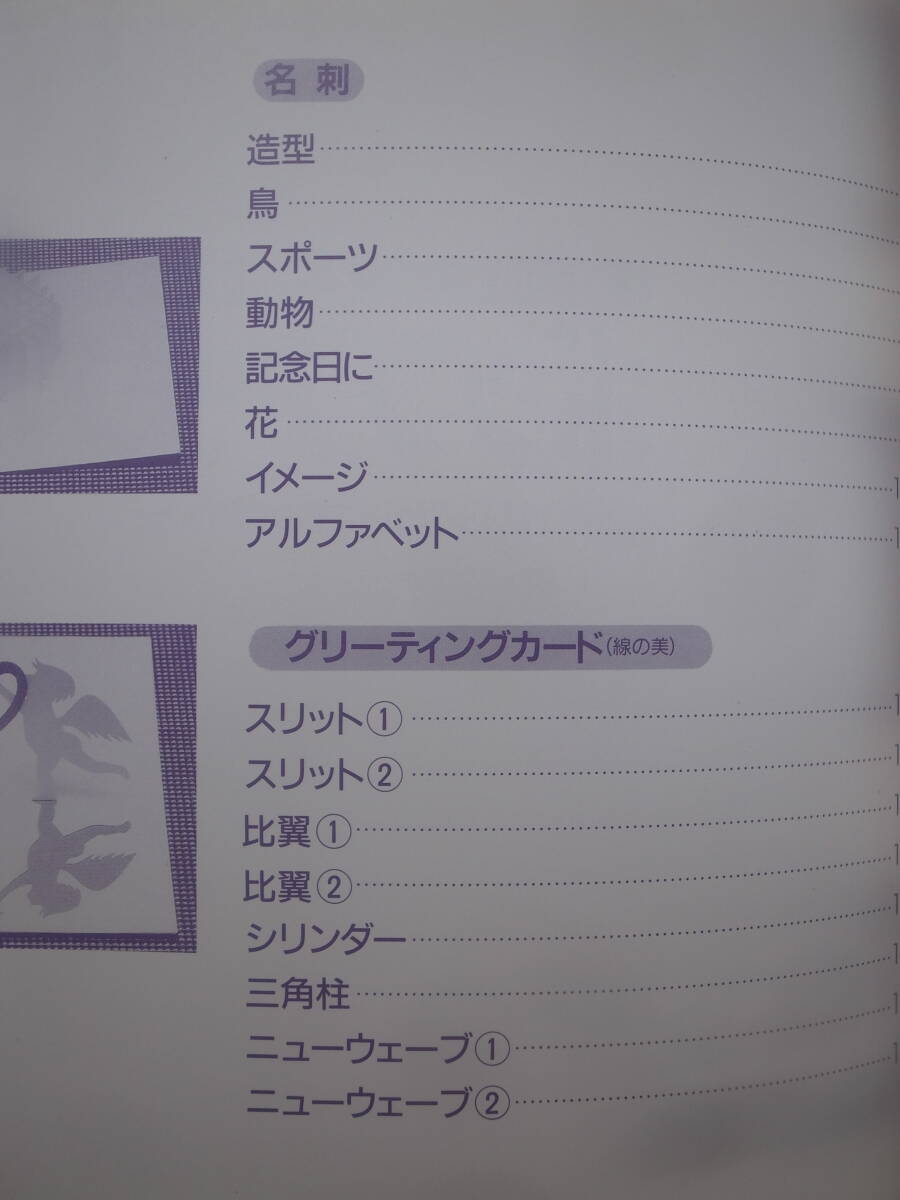 名刺
造型
鳥
スポーツ
動物
記念日に
花
イメージ
アルファベット
グリーティングカード(線の美)
スリット①
スリット②
比翼①
比翼②
シリンダー
三角柱
ニューウェーブ①
ニューウェーブ②